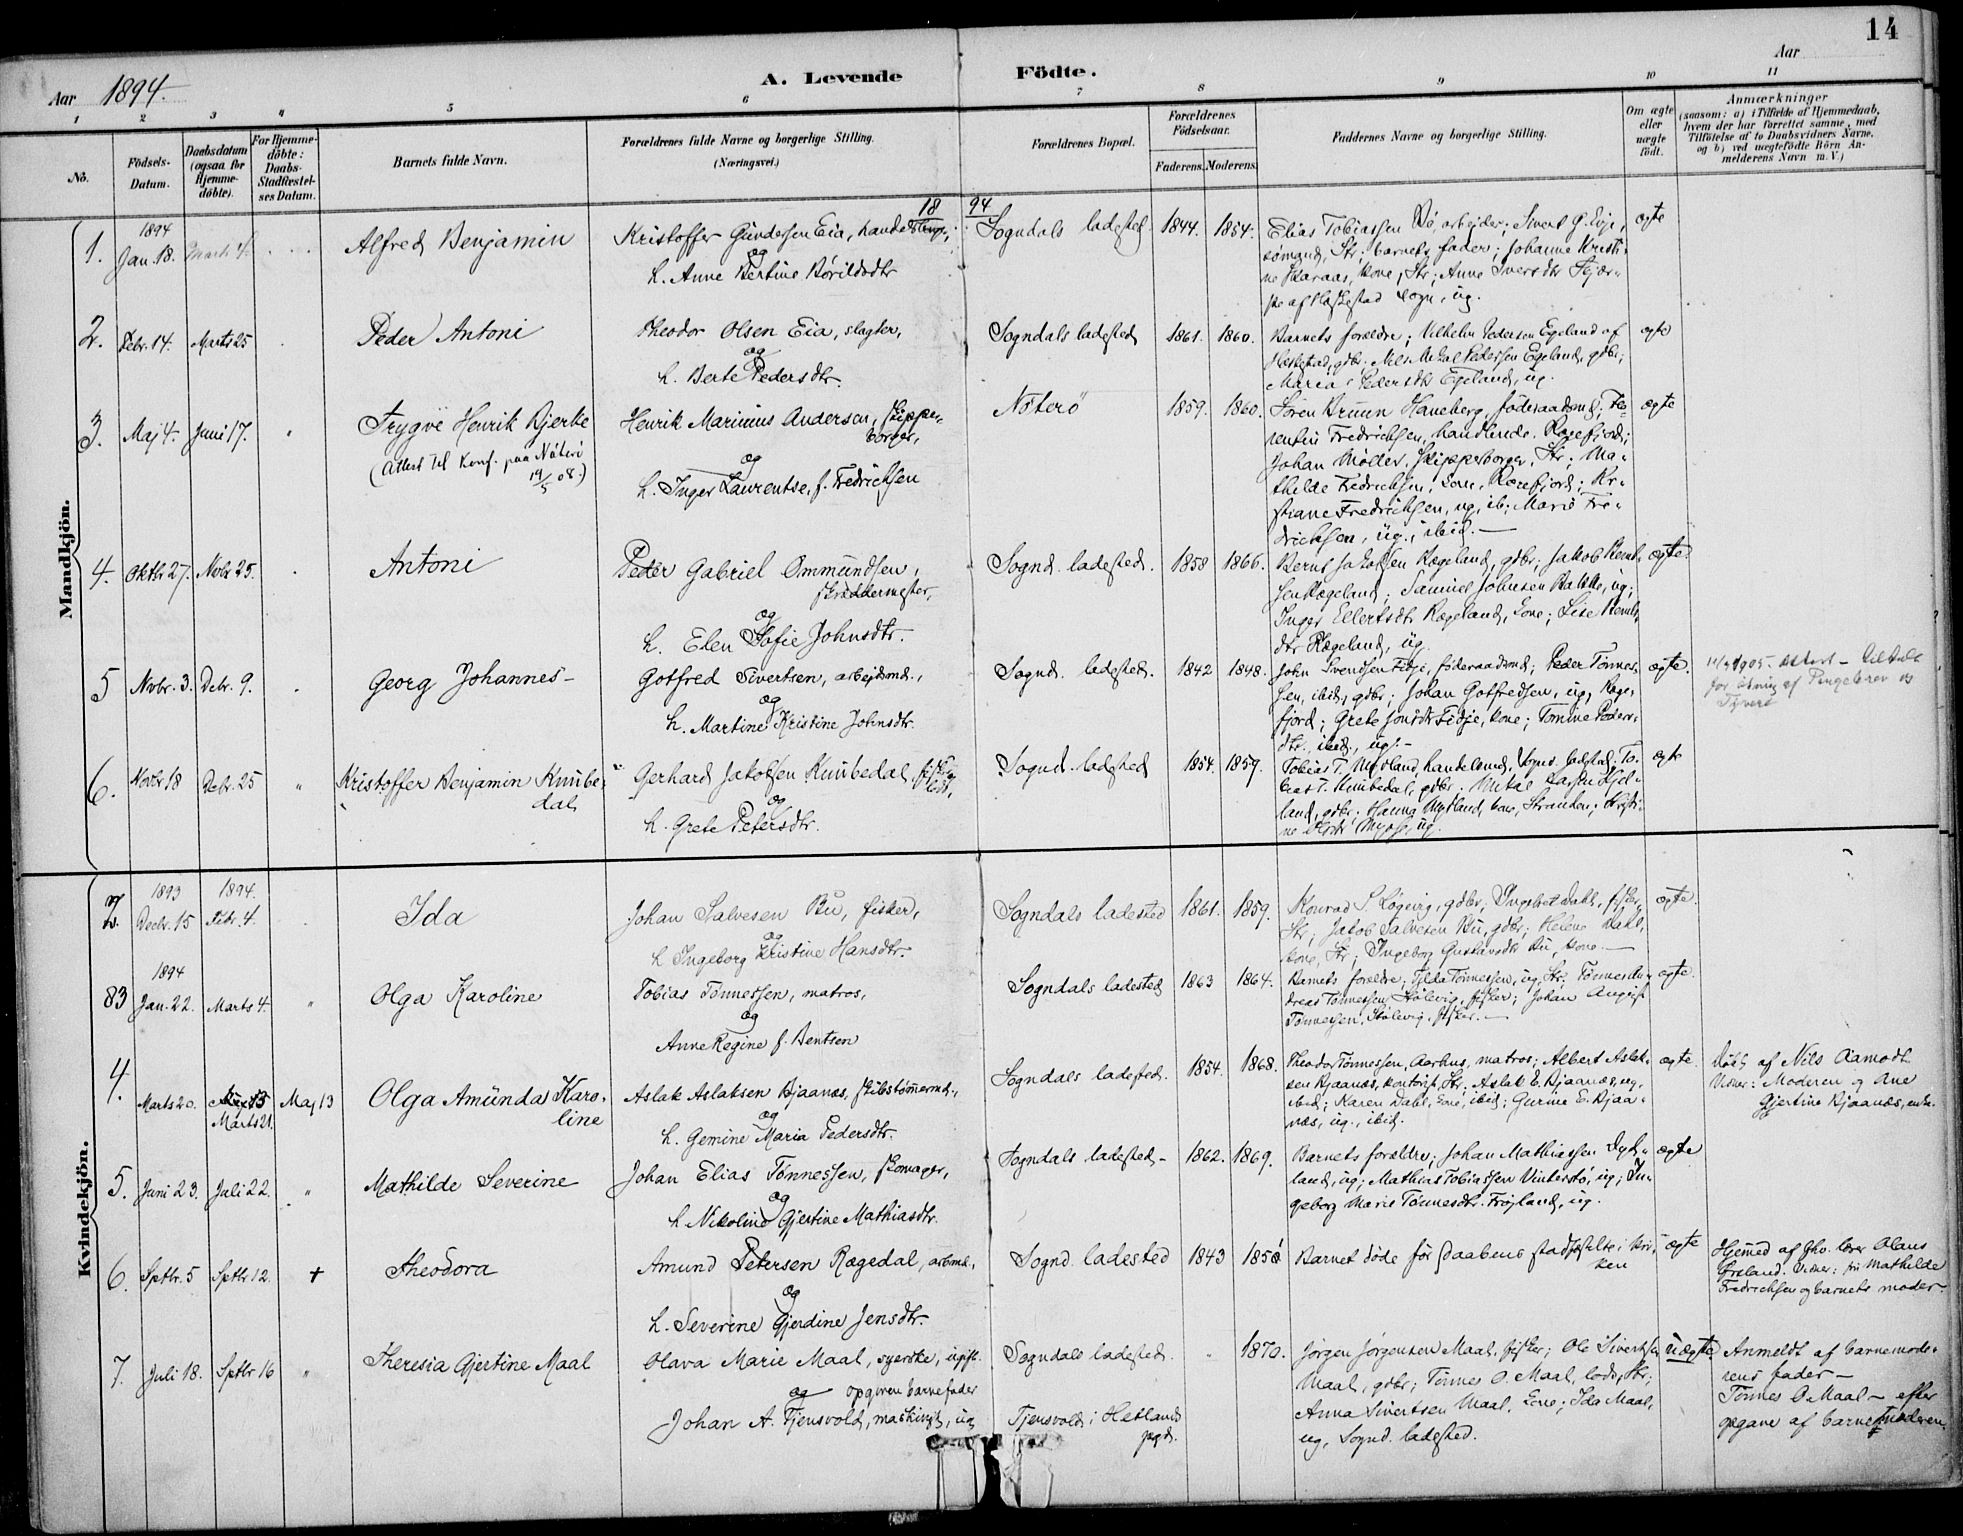 14
Aar 1894.
A. Levende Födte.
Aar
1 2 3 4 5 6 7 8 9 10 11
No.
Födsels-Datum.
Daabsdatum (ogsaa for Hjemme-döbte).
For Hjemme-döbte: Daabs-Stadfæstel-ses Datum.
Barnets fulde Navn.
Forældrenes fulde Navne og borgerlige Stilling.
(Næringsvei.)
Forældrenes Bopæl.
Forældrenes Födselsaar.
Faderens. Moderens.
Faddernes Navne og borgerlige Stilling.
Om ægte eller uægte födt.
Anmærkninger
(saasom: a) i Tilfælde af Hjemmedaab, hvem der har forrettet samme, med Tilföielse af to Daabsvidners Navne, og b) ved uægtefödte Börn An-melderens Navn m. V.)
18 94
Mandkjön.
1. 1894 Jan. 18. Marts 4. Alfred Benjamin
Kristoffer Gundersen Eia,
og
h. Anne Bertine Börildsdtr
Sogndals ladested. 1844. 1854.
Elias Tobiassen Bö, arbejder; Sivert G. Evje,
sömand, Str; barnets fader; Johanne Kristi-
ne Skaraas, kone, Str; Anne Siversdtr
af Hæskestad sogn, ug.
ægte
2. Febr. 14. Marts 25 Peder Antoni
Theodor Olsen Eia, slagter,
og
h. Berte Pedersdtr.
Sogndals ladested 1861. 1860.
Barnets forældre; Vilhelm Pedersen Egeland af
Hæskestad, gdbr. Pedersen Egeland, gdbr;
Maria Pedersdtr Egeland, ug.
ægte
3. Maj 4. Juni 17. Trygve Henrik Bjerke
(Attest til Konf. paa Nöterö
19/5 08.)
Henrik Marinius Andersen, skipper-
borger,
og
h. Inger Laurentse, f. Fredrichsen
Nöterö 1859. 1860.
Sören Bruun Haneberg, föderaadsmd; To-
Fredrichsen, handlende, Rægefjord;
Johan Möller, skipperborger, Str; Ma-
thilde Fredrichsen, kone, Rægefjord; Kr-
stiane Fredrichsen, ug, ib; Marie Fre-
drichsen, ug., ibid.
ægte
4. Oktbr 27. Novbr 25. Antoni
Peder Gabriel Ommundsen,
skræddermester,
og
h. Elen Sofie Johnsdtr.
Sognd. ladested. 1858 1866.
Bernt Jakobsen Rægeland, gdbr; Jakob Bernt-
sen Rægeland; Samuel Johnsen ug;
Inger Ellertsdtr Rægeland, kone; Lise Bernts-
dtr Rægeland, ug.
ægte
5 Novbr. 3. Debr. 9. Georg Johannes
Gotfred Sivertsen, arbejdsmd.,
og
h. Martine Kristine Johnsdtr.
Sognd. ladested. 1842 1848.
John Svendsen Fidje, föderaadsmd; Peder Tönnes-
sen, ibid, gdbr; Johan Gotfredsen, ug, Ræge-
fjord; Grete Jonsdtr Fidje, kone; Tomine Peders-
dtr., ibid., ug.
ægte.
1905. attest
for af Pengebrev og
Tyveri
6. Novbr 18 Debr. 25 Kristoffer Benjamin Knubedal
Gerhard Jakobsen Knubedal,
og
h. Grete Petersdtr.
Sognd. ladested 1854. 1859.
Tobias T. Mydland, handelsmd, Sognd. ladested; To-
bias T. Knubedal, gdbr. Mikal Larsen Hjel-
land, gdbr; Hanna Mydland, kone, Stranden;
ug.
ægte
Kvindekjön.
2. 1893 Decbr. 15 1894. Febr. 4. Ida
Johan Salvesen Bu, fisker,
og
h Ingeborg Kristine Hansdtr.
Sogndals ladested 1861. 1859.
Konrad S Lögevig, gdbr; Ingebret Dahl, fisker,
Str; Jakob Salvesen Bu, gdbr; Helene Dahl,
kone, Str; Ingeborg Gustavsdtr Bu, kone.
ægte.
3 1894 Jan. 22. Marts 4. Olga Karoline
Tobias Tönnessen, matros,
og
Anne Regine f. Bentsen
Sogndals ladested 1863 1864.
Barnets forældre; Tilda Tönnessen, ug, Str; Tönnes An-
dreas Tönnessen Stölevig, fisker; Johan August
Tönnessen, Stölevig, fisker.
ægte.
4. Marts 20. Marts 21. Maj 13 Olga Amunda Karo-
line
Aslak Aslaksen Bjaanæs, skibstömmermd.,
og
h. Gemine Maria Pedersdtr.
Sogndals ladested. 1854. 1868.
Theodor Tönnessen, Aarhus, matros; Albert Aslak-
sen Bjaanæs, kontorist, Str. Aslak E. Bjaanæs, ug,
ibid; Karen Dahl, kone, ibid; Gurine E. Bjaa-
næs, ug., ibid.
ægte.
Döbt af Nils Aamodt
Vidner: Moderen og Ane
Gjertine Bjaanæs, enke.
5. Juni 23. Juli 22. Mathilde Severine
Johan Elias Tönnessen, skomager,
og
h Nikoline Gjertine Mathiasdtr.
Sogndals ladested. 1862. 1869.
Barnets forældre; Johan Mathiassen Dyd-
land, ug; Mathias Tobiassen Vinterstö, ug; In-
geborg Marie Tönnesdtr. Fröjland, ug.
ægte
6. Septbr. 5 Septbr 12. + Theodora
Amund Petersen Rægedal, arbmd.,
og
h. Severine Gjerdine Jensdtr.
Sognd. ladested 1843
Barnet döde för daabens stadfæstelse i kir-
ken
ægte
Hjemmed af lærer Olaus
Vidner: fru Mathilde
Fredrichsen og barnets moder.
7. Juli 18. Septbr 16 Theresia Gjertine Maal
Olava Marie Maal, syerske, ugift.
og opgiven barnefader
Johan A. Tjensvold, maskinist, ug
Sogndals ladested.
Tjensvold i Hetlands
pgd.
1870.
Jörgen Jörgensen Maal, fisker; Ole Sivertsen
Maal, gdbr; Tönnes O. Maal, lods, Str;
Anna Sivertsen Maal, kone; Ida Maal,
ug, Sognd. ladested.
uægte
Anmeldt af barnemode-
rens fader
Tönnes O Maal – efter
opgave af barnemoderen.